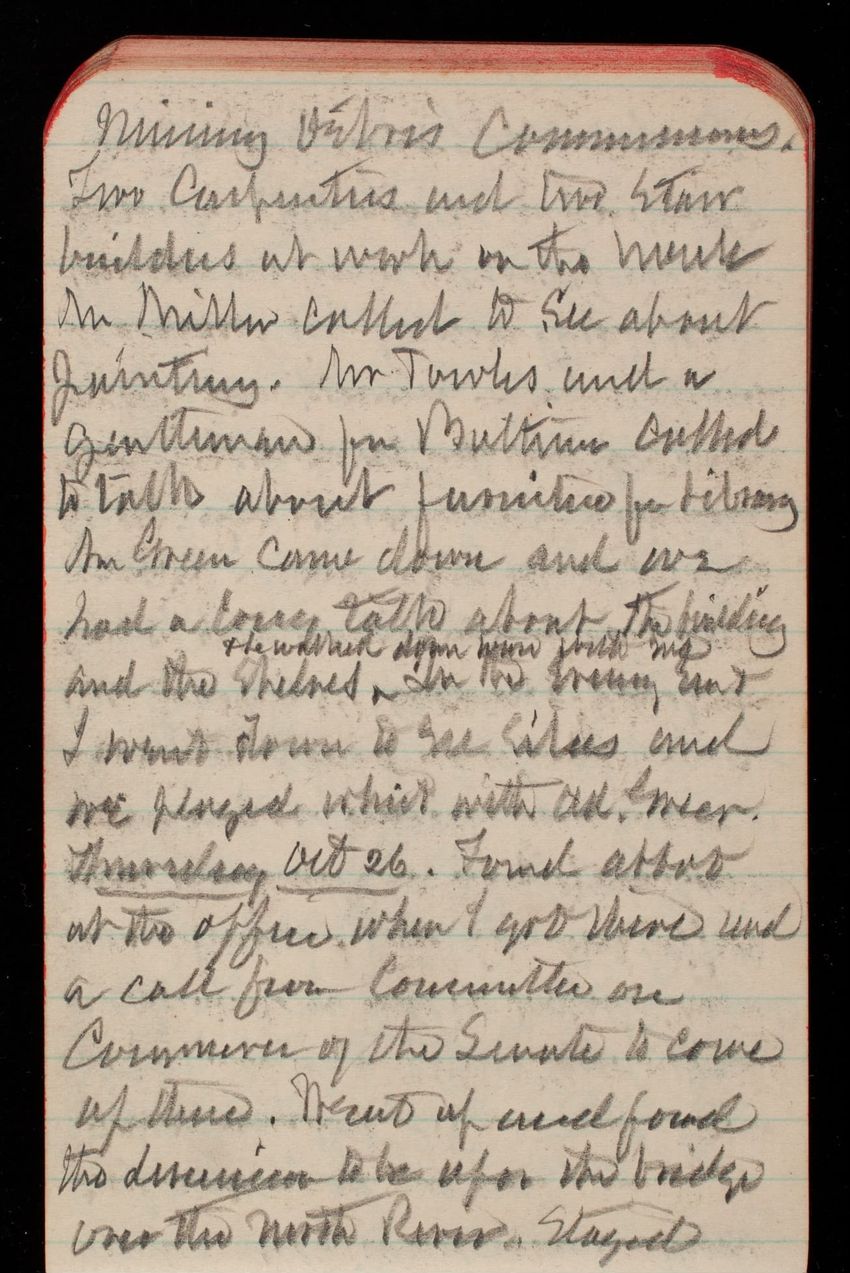 Mining Debris Commissions.
Two Carpenters and two Stair
builders at work on the house
Mr Miller called to See about
painting. Mr Towles and a
gentleman from called
to talk about furniture for Library
Mr Green came down and we
had a long talk about the building
& he walked down here with me
and the Shelves, In the Evening Em &
I went down to See Silas and
we played whist with Ad. Green.
Thursday Oct 26. Found Abbot
at the office when I got there and
a call from Committee on
Commerce of the Senate to come
up there. Went up and found
the discussion to be upon the bridge
over the North River. Stayed